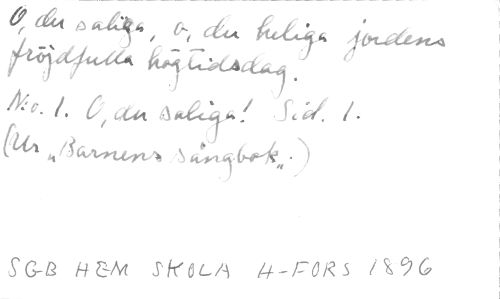 O, du saliga, o, du heliga jordens
fröjdfulla högtidsdag.
N:o. 1. O, du saliga! Sid. 1.
(Ur „Barnens sångbok„.)
SGB HEM SKOLA H-FORS 1896